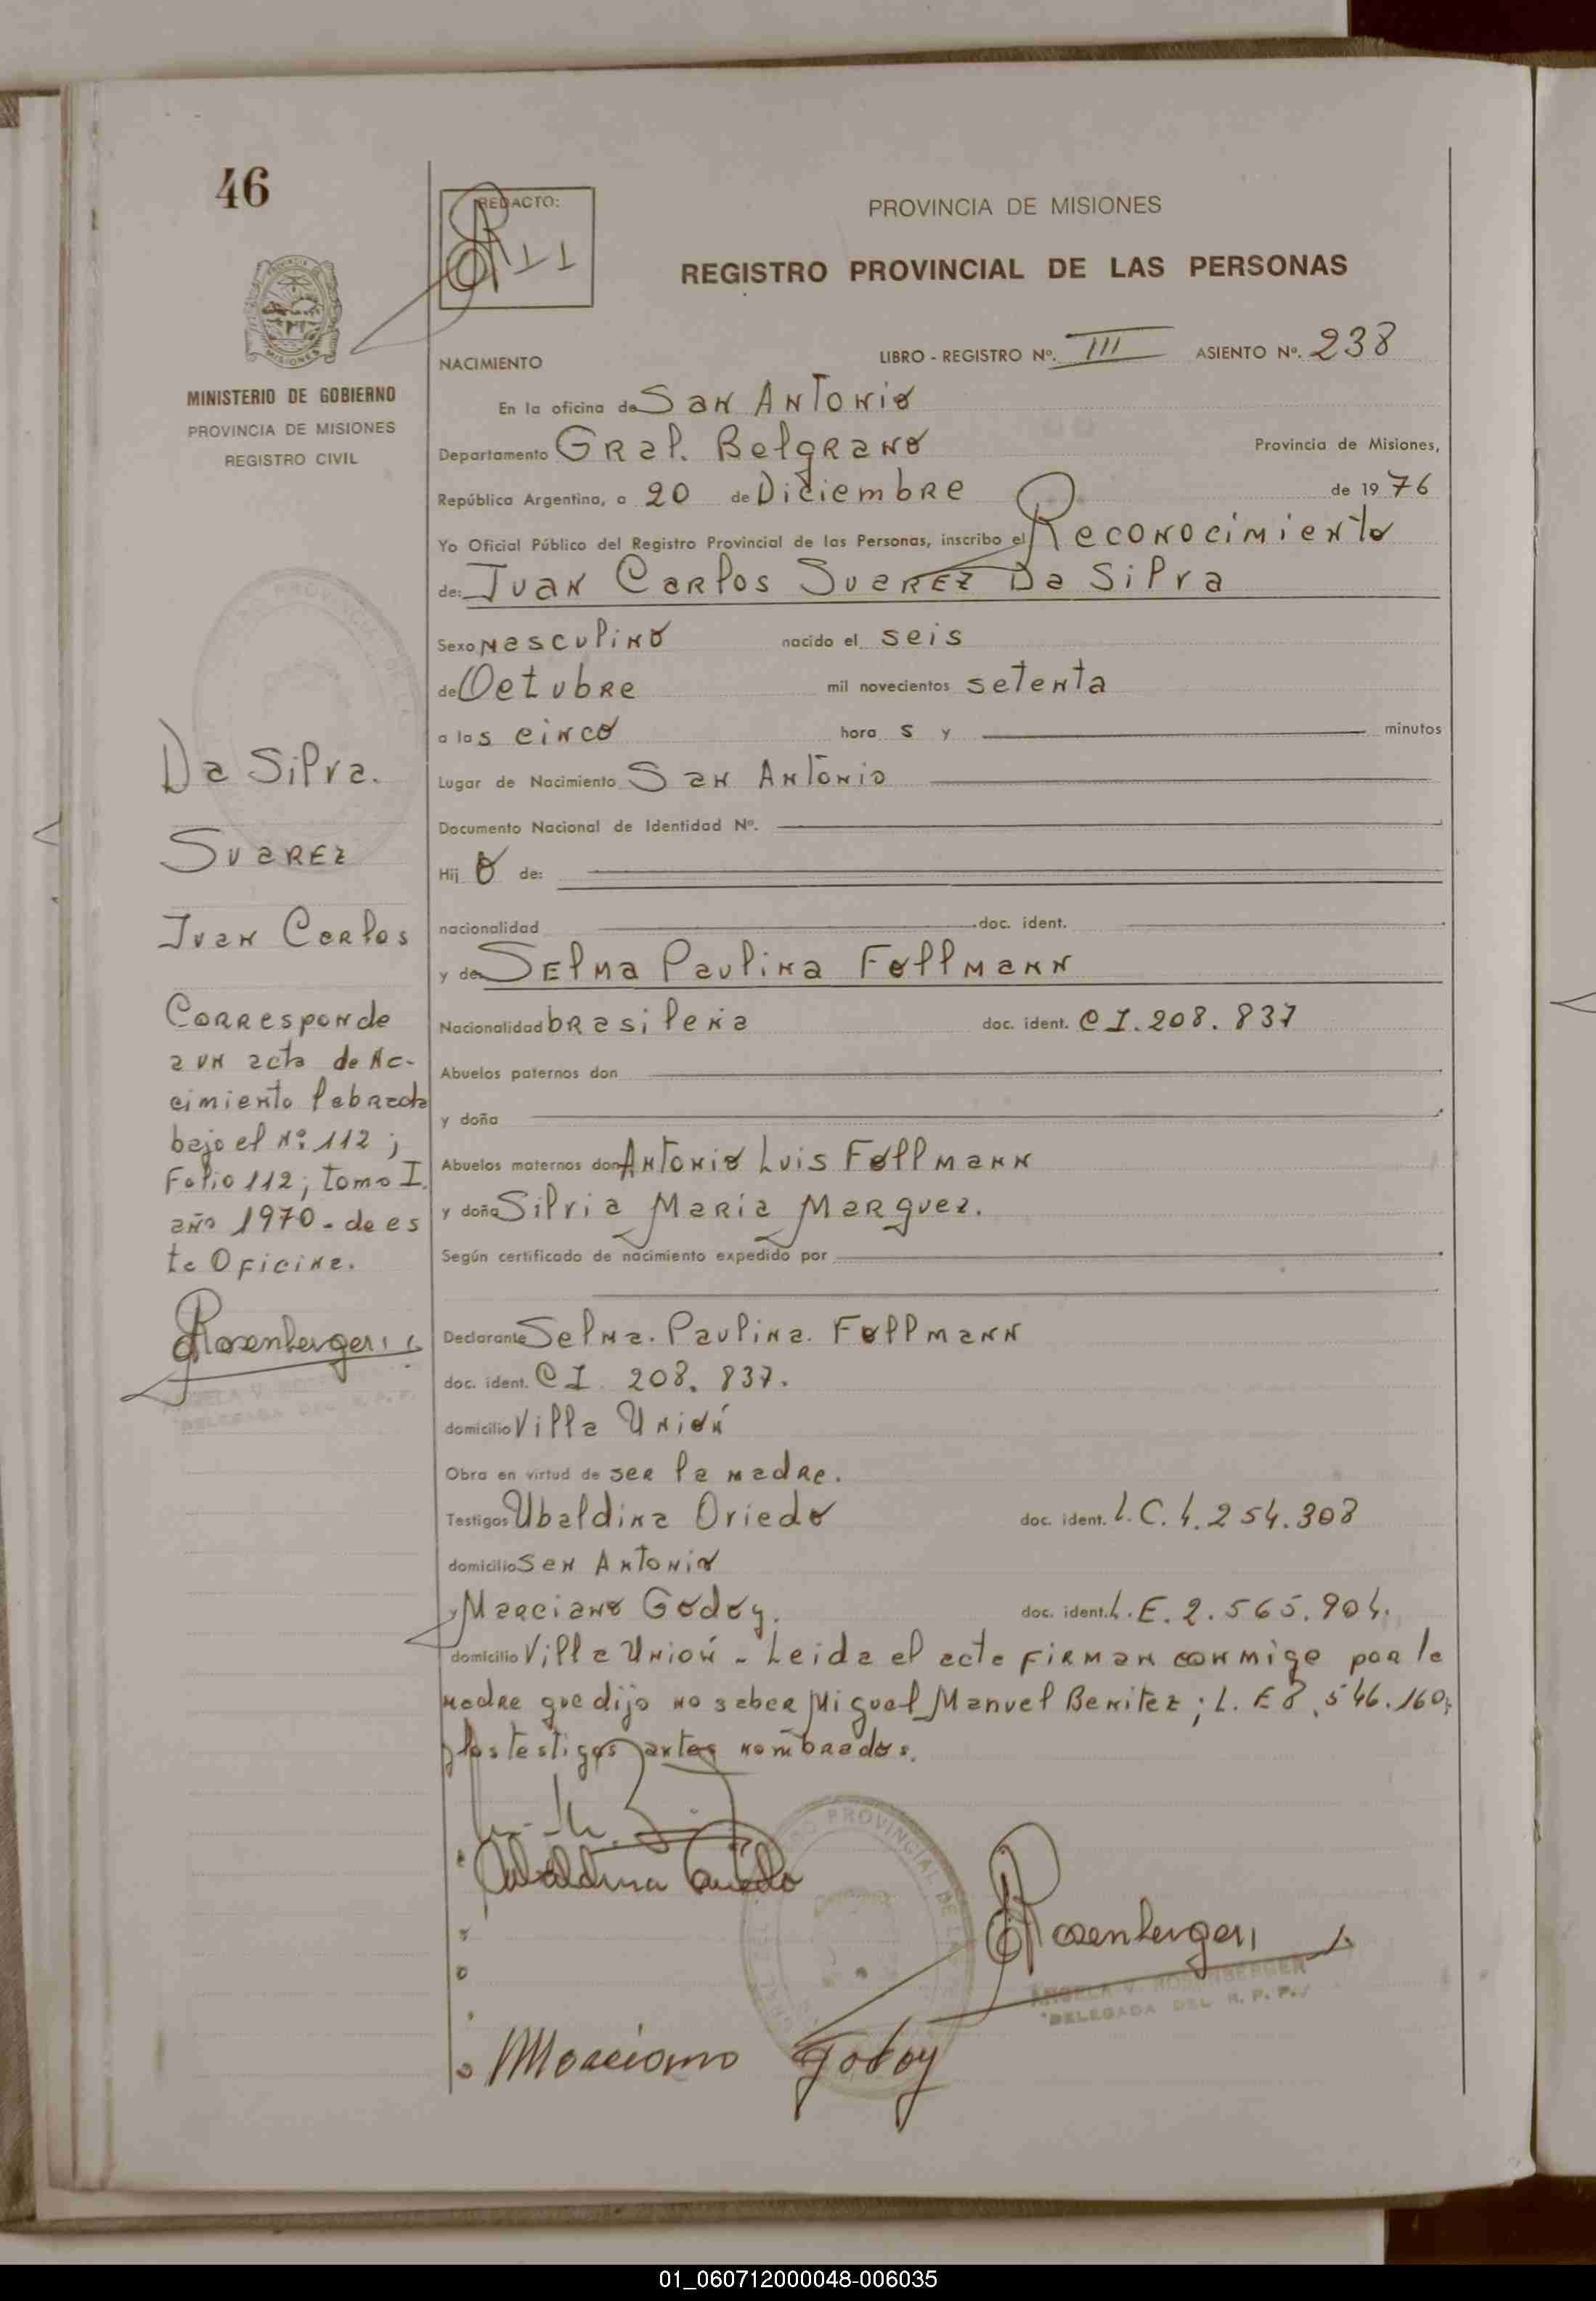 46
REDACTO:
PROVINCIA DE MISIONES
REGISTRO PROVINCIAL DE LAS PERSONAS
NACIMIENTO
LIBRO - REGISTRO Nº. III ASIENTO Nº. 238
MINISTERIO DE GOBIERNO
PROVINCIA DE MISIONES
REGISTRO CIVIL
En la oficina de San Antonio
Departamento Gral. Belgrano Provincia de Misiones,
República Argentina, a 20 de Diciembre de 1976
Yo Oficial Público del Registro Provincial de las Personas, inscribo el Reconocimiento
de: Juan Carlos Suarez Da Silva
Sexo masculino nacido el seis
de Octubre mil novecientos setenta
a las cinco hora s y minutos
Lugar de Nacimiento San Antonio
Documento Nacional de Identidad Nº.
Hij o de:
nacionalidad doc. ident.
y de Selma Paulina Follmann
Nacionalidad brasileña doc. ident. C I. 208. 837
Abuelos paternos don
y doña
Abuelos maternos don Antonio Luis Follmann
y doña Silvia María Marquez.
Según certificado de nacimiento expedido por
Declarante Selma. Paulina. Follmann
doc. ident. C I. 208. 837.
domicilio Villa Unión
Obra en virtud de ser la madre.
Testigos Ubaldina Oviedo doc. ident. L. C. 4. 254. 308
domicilio San Antonio
y Marciano Godoy. doc. ident. L. E. 2. 565. 904.
domicilio Villa Unión - Leida el acta firman conmigo por la
madre que dijo no saber Miguel Manuel Benitez; L. E 8. 546. 160;
y los testigos antes nombrados.
Da Silva.
Suarez
Juan Carlos
Corresponde
a un acta de Na-
cimiento labrada
bajo el Nº 112;
Folio 112; tomo I.
año 1970 - de es
ta Oficina.
Rosenberger
ANGELA V. ROSENBERGER
DELEGADA DEL R. P. P.
Ubaldina Oviedo
Rosenberger
ANGELA V. ROSENBERGER
DELEGADA DEL R. P. P.
Marciano Godoy
01_060712000048-006035